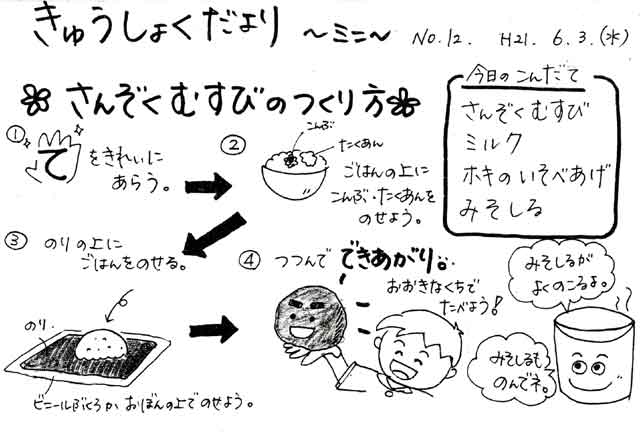 きゅうしょくだより ～ミニ～ No.12. H21. 6.3.(水)
今日のこんだて
さんぞくむすび
ミルク
ホキのいそべあげ
みそしる
さんぞくむすびのつくり方
① てをきれいに
あらう。
②
こんぶ
たくあん
ごはんの上に
こんぶ・たくあんを
のせよう。
③ のりの上に
ごはんをのせる。
のり
ビニールぶくろか おぼんの上でのせよう。
④ つつんで できあがり。
おおきなくちで
たべよう!
みそしるが
よくのこるよ。
みそしるも
のんでネ。